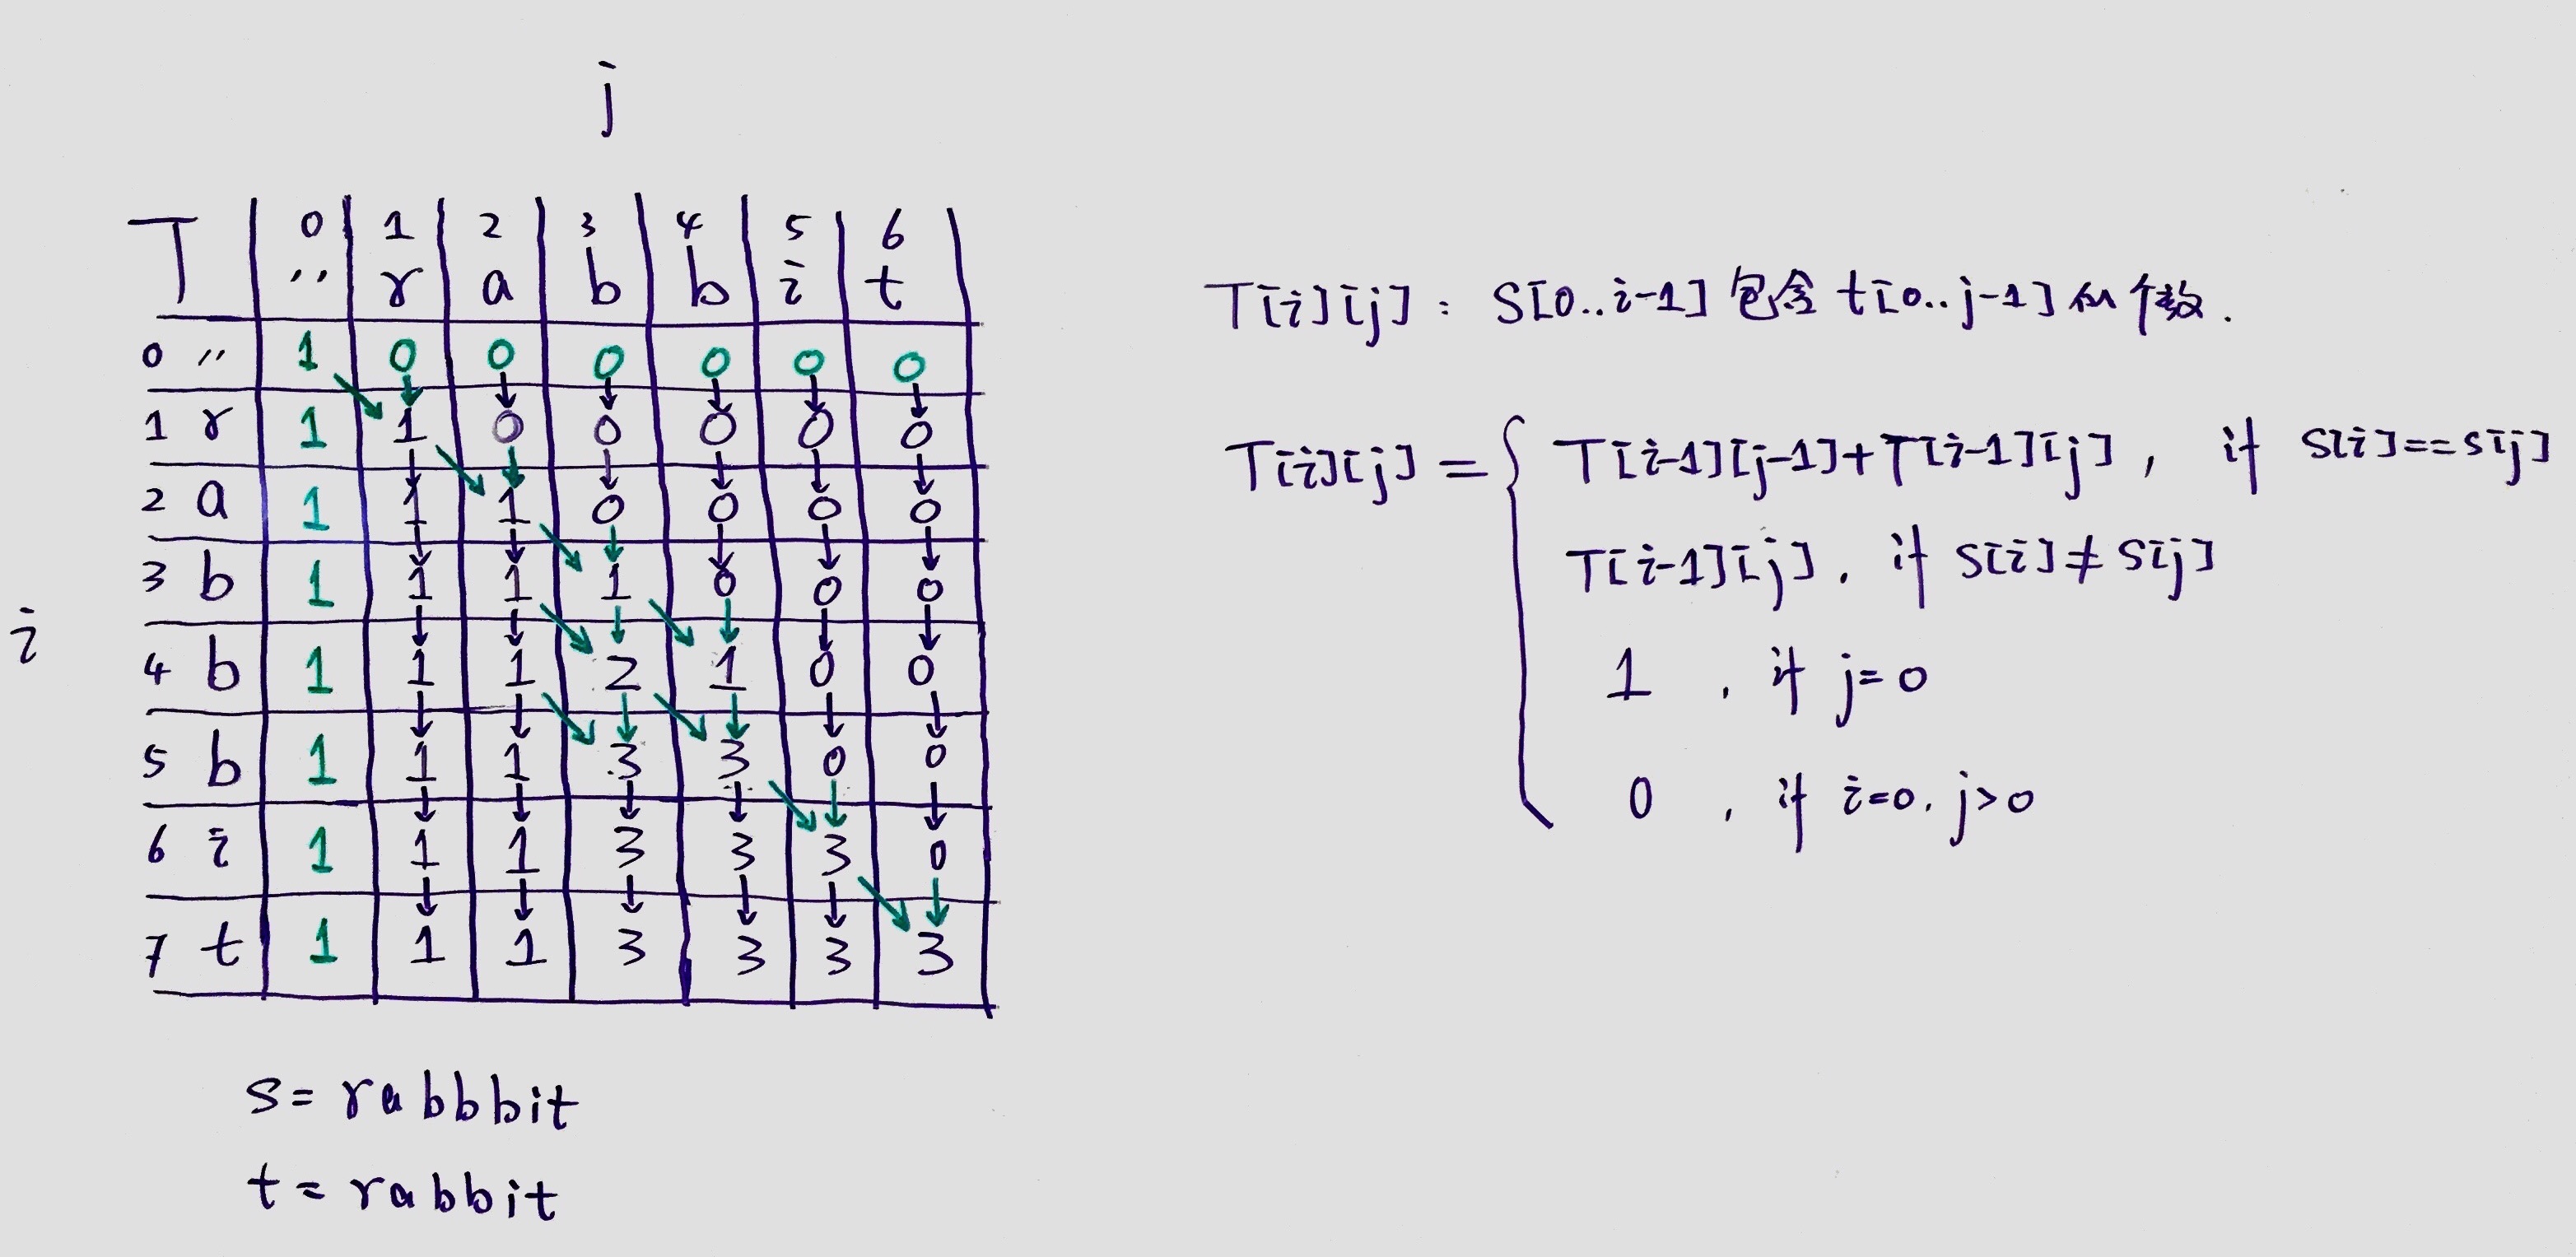 j
T 0 1 2 3 4 5 6
'' r a b b i t
0 '' 1 0 0 0 0 0 0
1 r 1 1 0 0 0 0 0
2 a 1 1 1 0 0 0 0
3 b 1 1 1 1 0 0 0
i
4 b 1 1 1 2 1 0 0
5 b 1 1 1 3 3 0 0
6 i 1 1 1 3 3 3 0
7 t 1 1 1 3 3 3 3
s= rabbbit
t= rabbit
T[i][j] : S[0..i-1] 包含 t[0..j-1] 的个数.
T[i][j] = { T[i-1][j-1]+T[i-1][j] , if s[i]==s[j]
T[i-1][j] , if s[i]≠s[j]
1 , if j=0
0 , if i=0, j>0